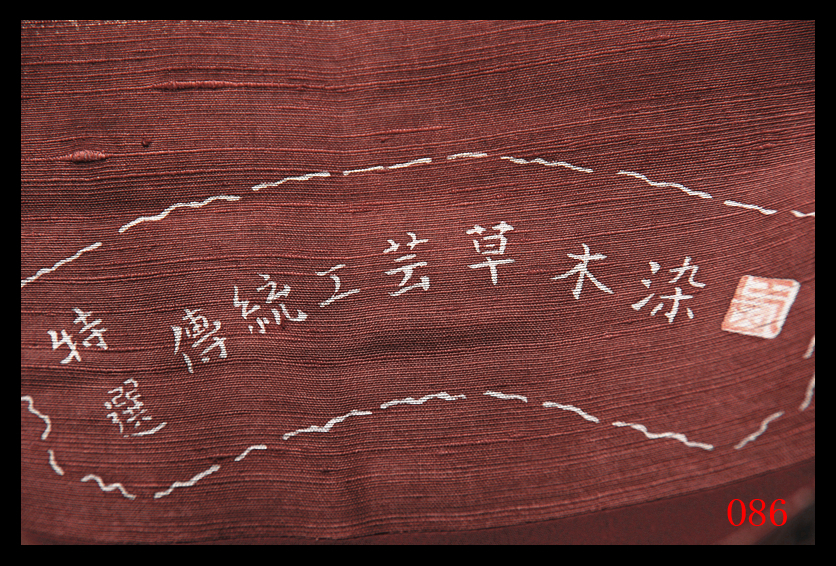 特選
傳統工芸草木染
086